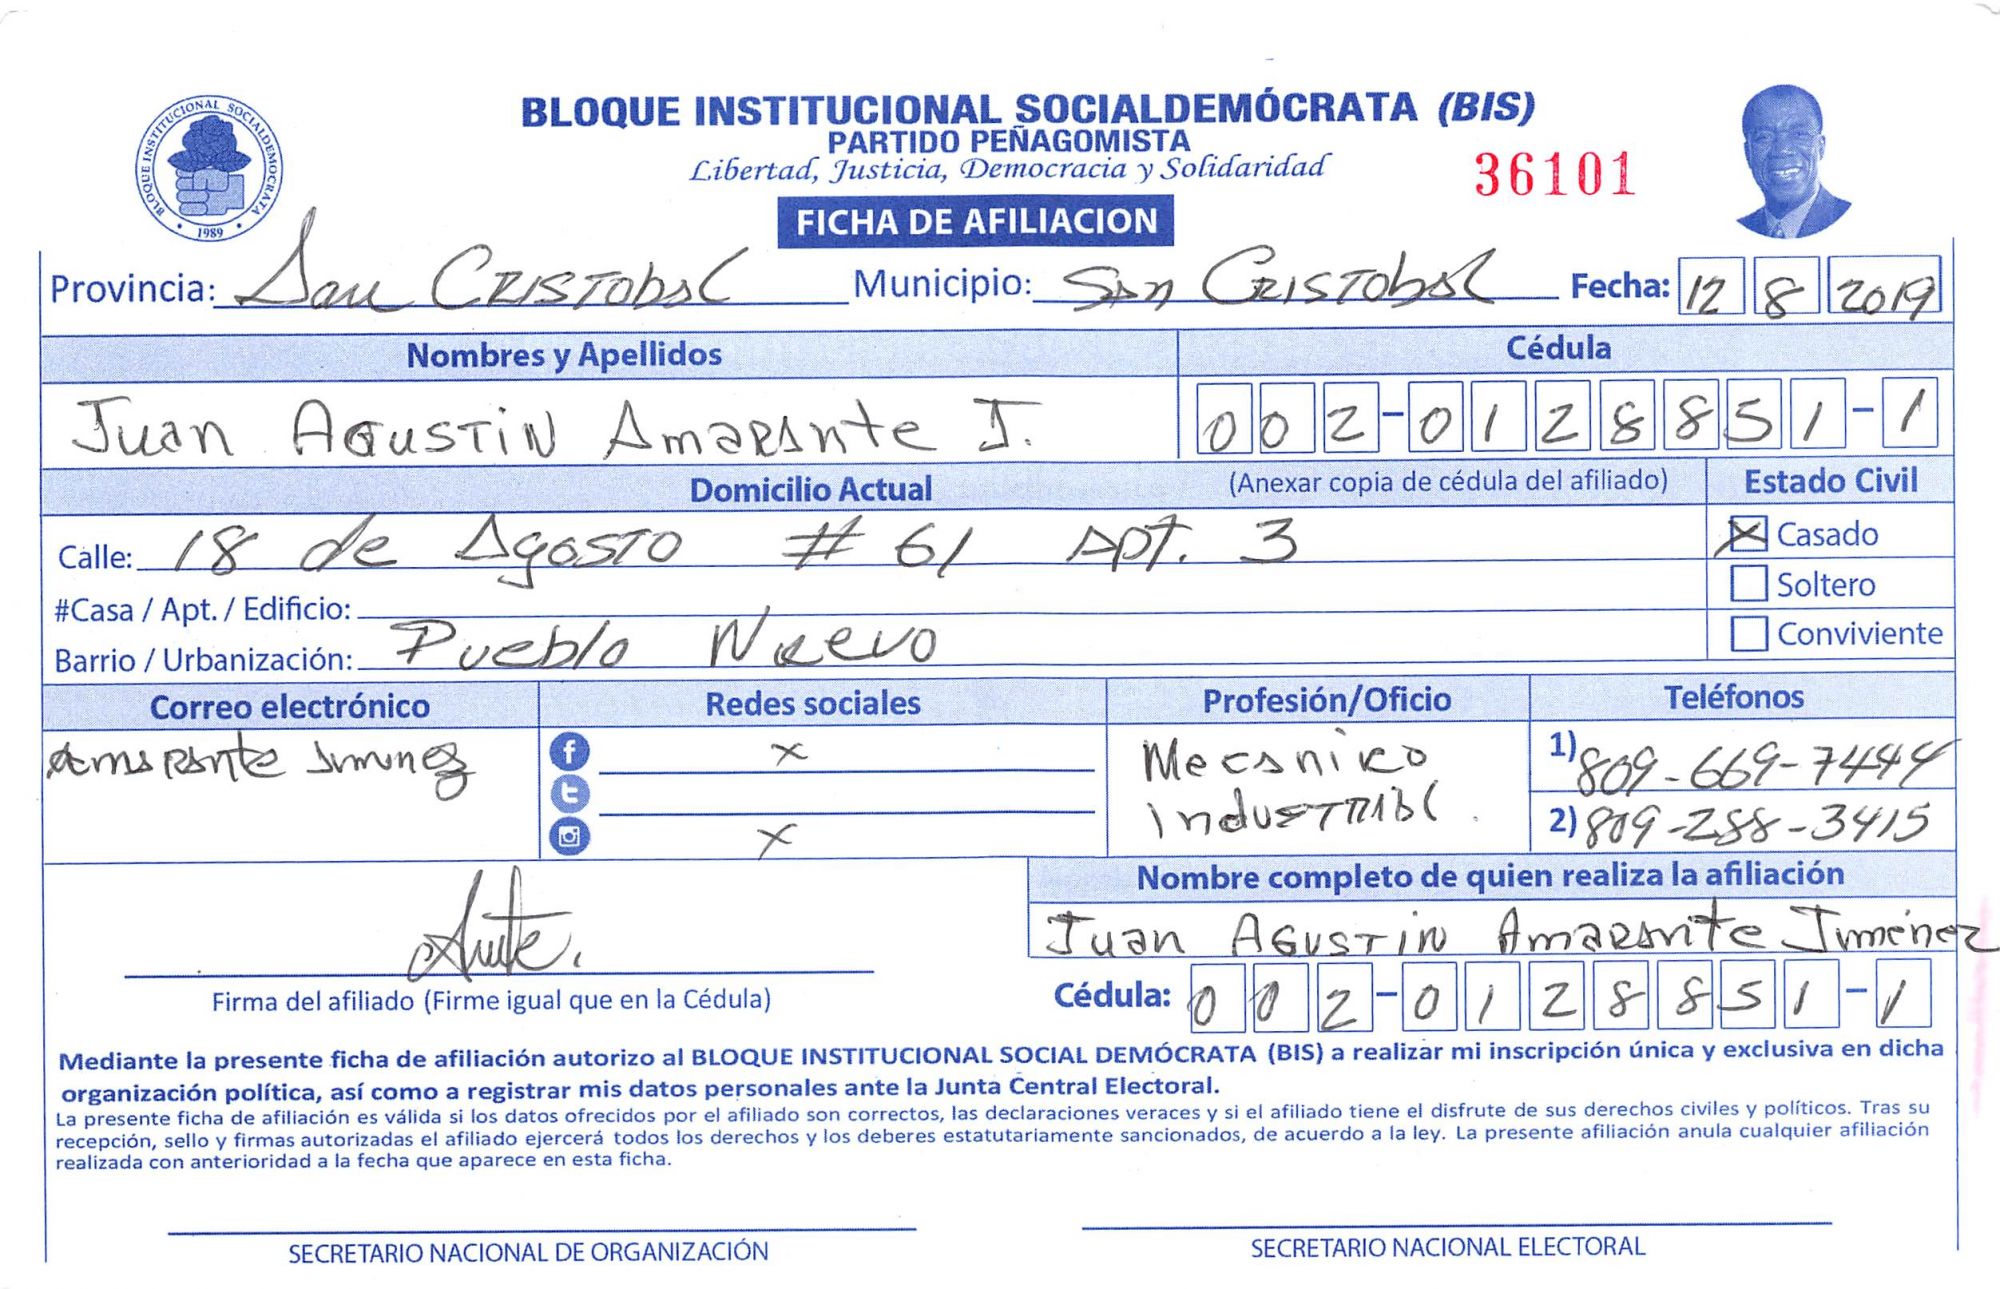 BLOQUE INSTITUCIONAL SOCIALDEMOCRATA
1989
BLOQUE INSTITUCIONAL SOCIALDEMÓCRATA (BIS)
PARTIDO PEÑAGOMISTA
Libertad, Justicia, Democracia y Solidaridad
36101
FICHA DE AFILIACION
Provincia: San CRISTobal Municipio: San CRISTobal Fecha: 12 8 2019
Nombres y Apellidos Cédula
Juan AGUSTiN AmaRante J. 002-0128851-1
Domicilio Actual (Anexar copia de cédula del afiliado) Estado Civil
Calle: 18 de AgosTo # 61 Apt. 3 X Casado
#Casa / Apt. / Edificio: Soltero
Barrio / Urbanización: Pueblo Nuevo Conviviente
Correo electrónico Redes sociales Profesión/Oficio Teléfonos
AmaRante Jimenez f x Mecanico 1) 809-669-7444
t IndusTRial. 2) 809-288-3415
x
Nombre completo de quien realiza la afiliación
Juan AGUSTiN AmaRante Jiménez
Firma del afiliado (Firme igual que en la Cédula) Cédula: 002-0128851-1
Mediante la presente ficha de afiliación autorizo al BLOQUE INSTITUCIONAL SOCIAL DEMÓCRATA (BIS) a realizar mi inscripción única y exclusiva en dicha
organización política, así como a registrar mis datos personales ante la Junta Central Electoral.
La presente ficha de afiliación es válida si los datos ofrecidos por el afiliado son correctos, las declaraciones veraces y si el afiliado tiene el disfrute de sus derechos civiles y políticos. Tras su
recepción, sello y firmas autorizadas el afiliado ejercerá todos los derechos y los deberes estatutariamente sancionados, de acuerdo a la ley. La presente afiliación anula cualquier afiliación
realizada con anterioridad a la fecha que aparece en esta ficha.
SECRETARIO NACIONAL DE ORGANIZACIÓN SECRETARIO NACIONAL ELECTORAL